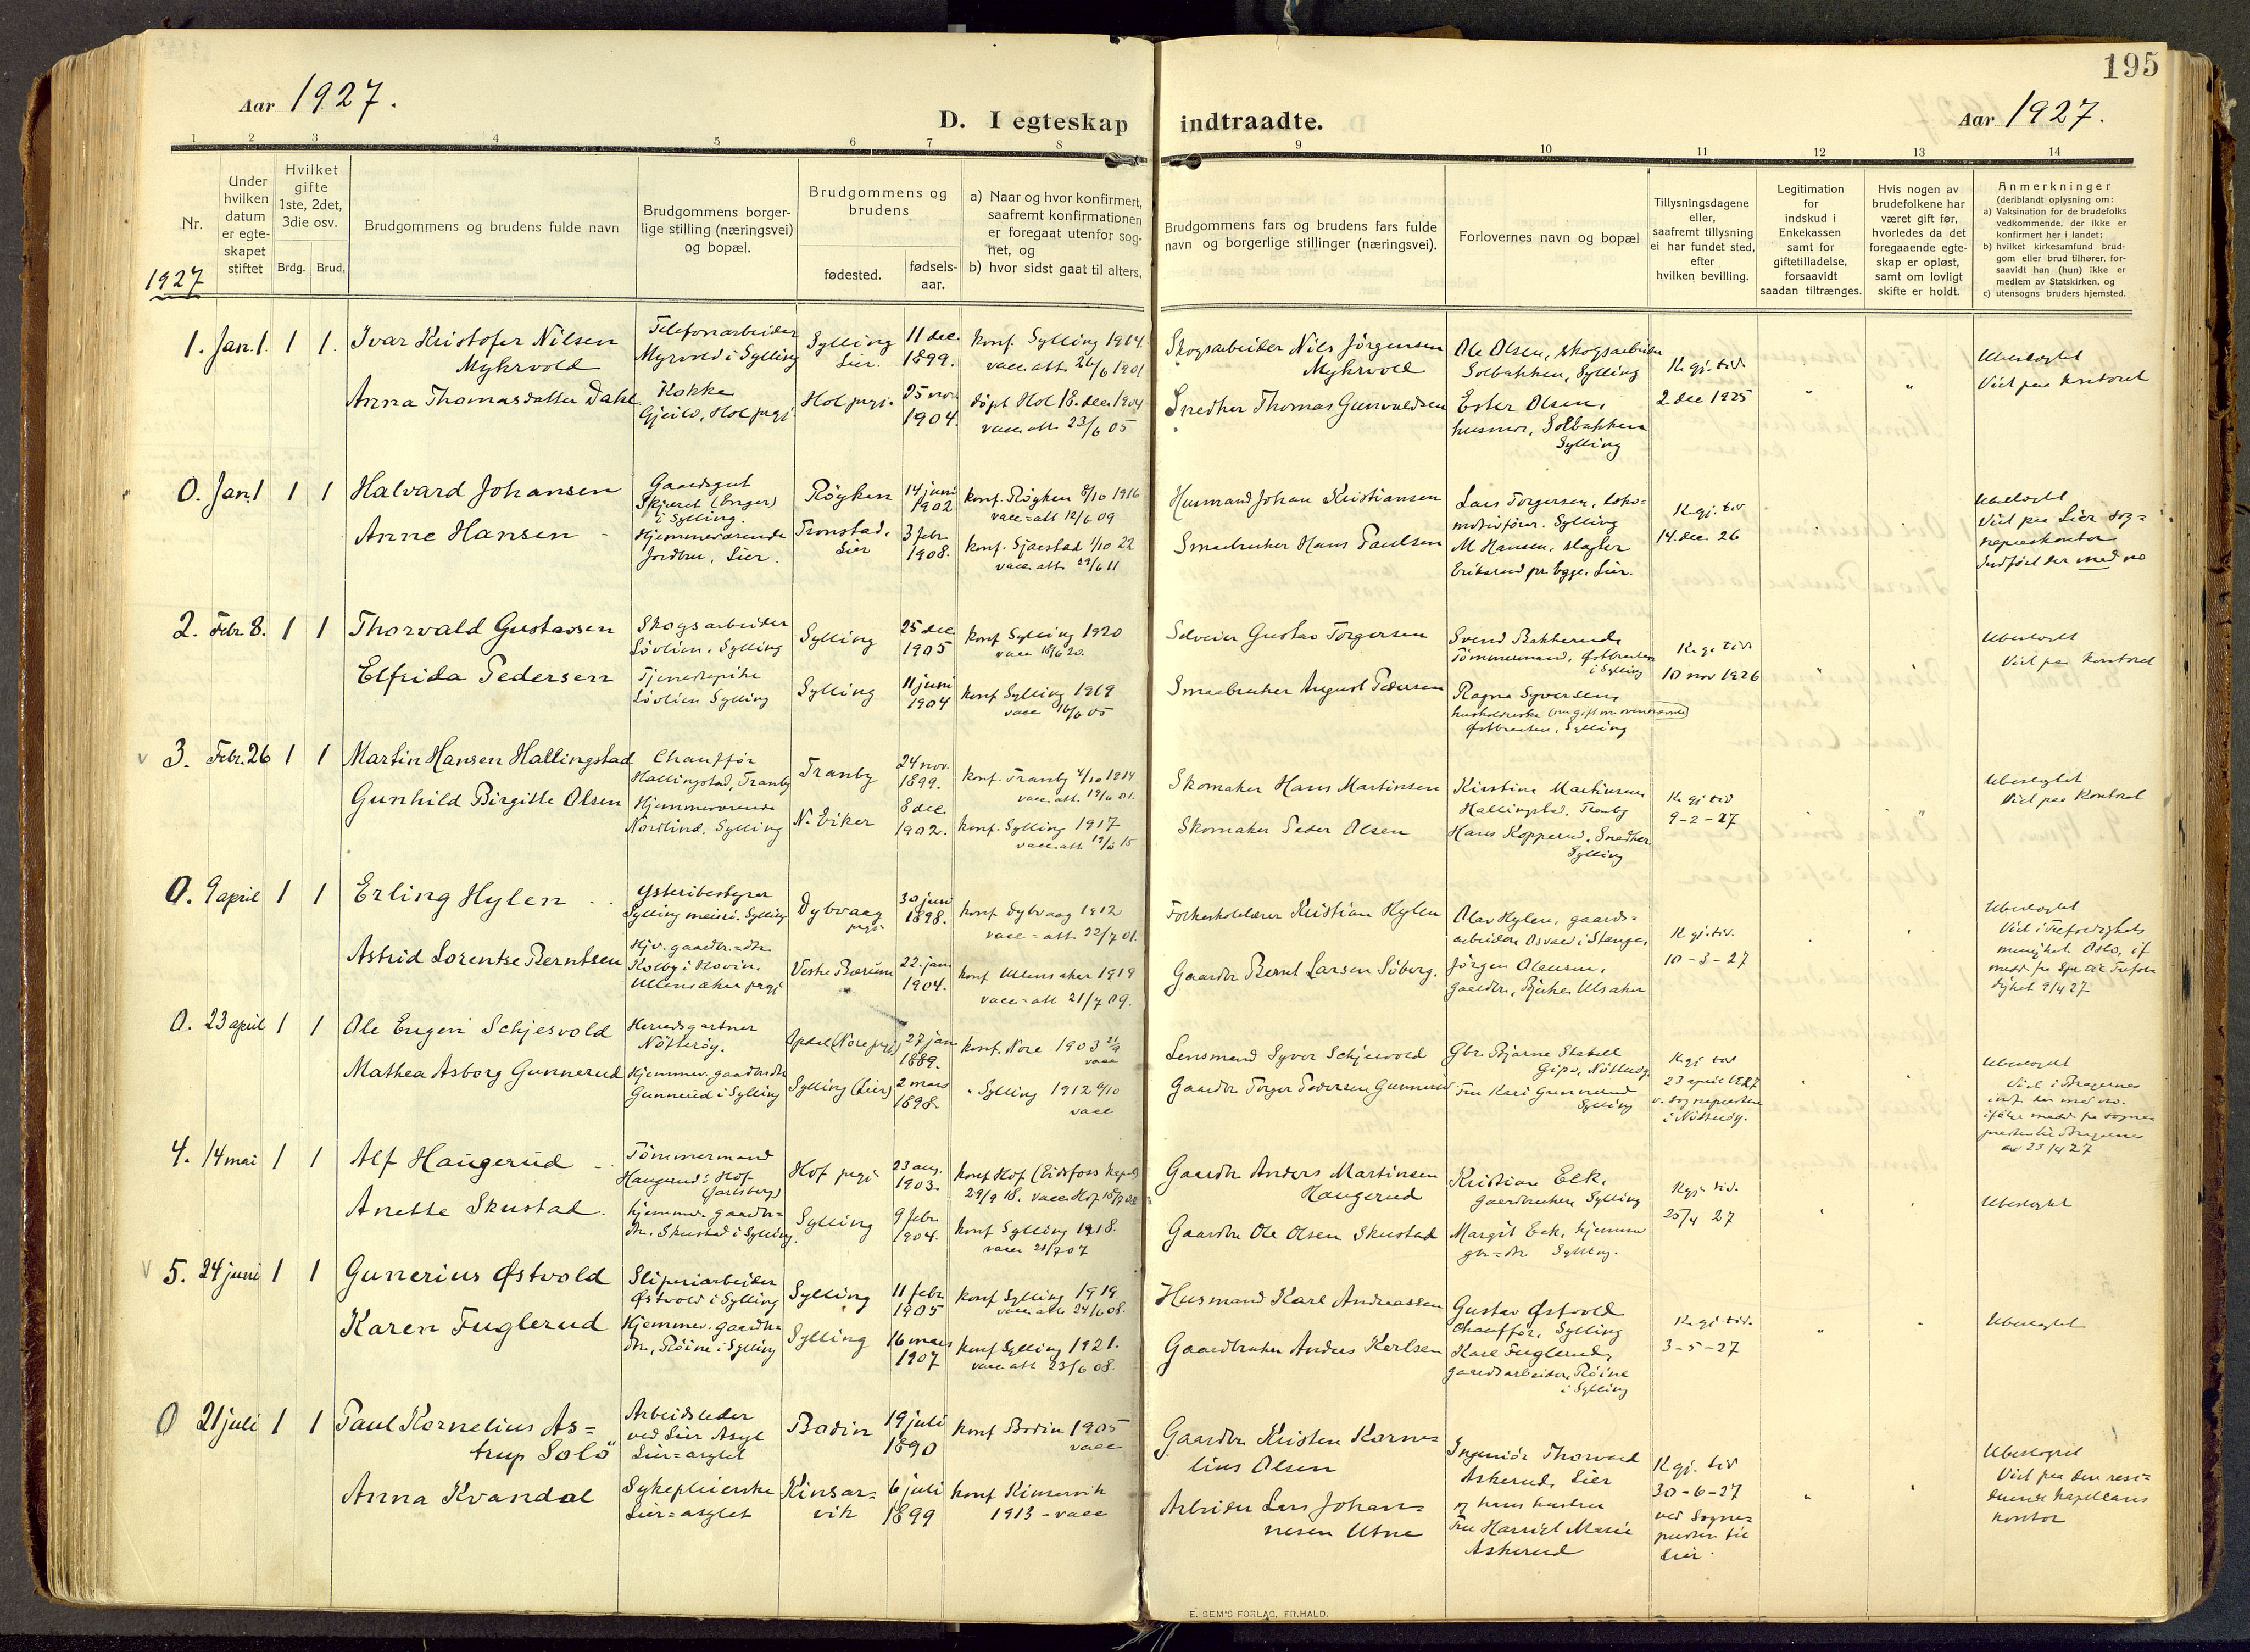 195
Aar 1927.
D. I egteskap indtraadte.
Aar 1927.
1 2 3 4 5 6 7 8 9 10 11 12 13 14
Nr.
Under hvilken datum er egte-skapet stiftet
Hvilket gifte 1ste, 2det, 3die osv.
Brdg. Brud.
Brudgommens og brudens fulde navn
Brudgommens borger-lige stilling (næringsvei) og bopæl.
Brudgommens og brudens
fødested.
fødsels-aar.
a) Naar og hvor konfirmert, saafremt konfirmationen er foregaat utenfor sog-net, og
b) hvor sidst gaat til alters,
Brudgommens fars og brudens fars fulde navn og borgerlige stillinger (næringsvei).
Forlovernes navn og bopæl
Tillysningsdagene eller, saafremt tillysning ei har fundet sted, efter hvilken bevilling.
Legitimation for indskud i Enkekassen samt for giftetilladelse, forsaavidt saadan tiltrænges.
Hvis nogen av brudefolkene har været gift før, hvorledes da det foregaaende egte-skap er opløst, samt om lovligt skifte er holdt.
Anmerkninger
(deriblandt oplysning om:
a) Vaksination for de brudefolks vedkommende, der ikke er konfirmert her i landet;
b) hvilket kirkesamfund brud-gom eller brud tilhører, for-saavidt han (hun) ikke er medlem av Statskirken, og
c) utensogns bruders hjemsted.
1927
1. Jan. 1. 1 1. Ivar Kristofer Nilsen
Myhrvold
Telefonarbeider
Myrvold i Sylling
Sylling
Lier.
11 dec.
1899.
konf. Sylling 1914.
vacc. att. 26/6 1901
Skogsarbeider Nils Jörgensen
Myhrvold
Ole Olsen, skogsarbeider
Solbakken, Sylling
K. gj. tid.
2 dec 1925
Ubeslegtet
Viet paa kontoret
Anna Thomasdatter Dahl
Kokke
Gjeilo, Hol prgj
Hol prgj.
25 nov.
1904.
döpt Hol 18. dec. 1904
vacc. att. 23/6 05
Snedker Thomas Gunvaldsen
Ester Olsen,
husmor, Solbakken
Sylling
0. Jan. 1 1 1 Halvard Johansen
Gaardsgut
Skjæret (Enger)
i Sylling.
Röyken
14 juni
1902
konf. Röyken 8/10 1916
vacc = att 12/6 09
Husmand Johan Kristiansen
Lars Torgersen, loko=
motivförer. Sylling
K. gj. tid
14. dec. 26
Ubeslegtet
Viet paa Lier sog=
neprestkontor
Indfört der med no
Anne Hansen
Hjemmeværende
Jordbru, Lier.
Tronstad,
Lier
3 febr
1908.
konf. Sjaastad 1/10 22
vacc. att. 29/6 11
Smaabruker Hans Paulsen
M Hansen, slagter
Eriksrud pr. Egge, Lier.
2. Febr 8. 1 1 Thorvald Gustavsen
Skogsarbeider
Lövlien, Sylling
Sylling
25 dec
1905
konf Sylling 1920
vacc 16/6 20.
Selveier Gustav Torgersen
Svend Bakkerud,
Tömmermand, Östbraaten
i Sylling
K. gj. tid
10 nov 1926
Ubeslegtet
Viet paa kontoret
Elfrida Pedersen
Tjenestepike
Lövlien Sylling
Sylling
11 juni
1904
konf Sylling 1919
vacc 16/6 05
Smaabruker August Pedersen
Ragna Syversen,
Östbraaten, Sylling
3. Febr. 26 1 1 Martin Hansen Hallingstad
Chaufför
Hallingstad, Tranby
Tranby
24 nov.
1899.
konf. Tranby 4/10 1914
vacc. att. 19/6 01.
Skomaker Hans Martinsen
Kirstine Martinsen
Hallingstad. Tranby
K. gj. tid
9-2-27
Ubeslegtet
Viet paa kontoret
Gunhild Birgitte Olsen
Hjemmeværende
Nordlind. Sylling
N. Eiker
8 dec
1902.
konf. Sylling 1917
vacc. att. 19/6 15
Skomaker Peder Olsen
Hans Kopperud, Snedker
Sylling
0. 9 april 1 1 Erling Hylen
Ysteribestyrer
Sylling meieri. Sylling
Dybvaag
prgj
30 juni
1898.
konf Dybvaag 1912
vacc = att 22/7 01.
Folkeskolelærer Kristian Hylen
Olav Hylen, gaards=
arbeider Osvald i Stange,
K. gj. tid.
10-3-27
Ubeslegtet
Viet i Trefoldigheds
menighet Oslo, if
medd fra Spr til Trefol
dighet 9/4 27
Astrid Lorentse Berntsen
Hjv. gaardbr. = dtr
Kolby i Hovin,
Ullensaker prgj
Vestre Bærum
22. jan.
1904.
konf Ullensaker 1919
vacc = att 21/7 09.
Gaardbr Bernt Larsen Söberg.
Jörgen Olausen,
gaardbr, Bjerke Ulsaker
0. 23 april 1 1 Ole Engen Schjesvold
Herredsgartner
Nötteröy.
Opdal (Nore prgj)
27 jan
1889.
konf. Nore 1903 21/9
vacc
Lensmand Syver Schjesvold
Gbr. Bjarne Stabell
Gipö, Nötteröy.
K. gj tid
23 april 1927
v. sognepresten
i Nötteröy.
Ubeslegtet
Viet i Bragernes
indf. der med no.
ifölge medd fra sogne
presten til Bragernes
av 23/4 27
Mathea Asborg Gunnerud
Hjemmev. gaardbr dtr
Gunnerud i Sylling
Sylling (Lier)
2 mars
1898.
" Sylling 1912 6/10
vacc
Gaardbr Torger Pedersen Gunnerud
Fru Kari Gunnerud
Sylling
4. 14 mai 1 1 Alf Haugerud
Tömmermand
Haugerud i Hof
(Jarlsberg)
Hof prgj
23 aug.
1903.
konf Hof (Eidsfoss kapel)
29/9 18. vacc Hof
Gaardbr Anders Martinsen
Haugerud
Kristian Eek,
gaardbruker Sylling
K gj. tid.
25/4 27
Ubeslegtet
Anette Skustad.
hjemmev. gaardbr=
dtr. Skustad i Sylling.
Sylling
9 febr
1904.
konf Sylling 1918.
vacc 21/7 07
Gaardbr Ole Olsen Skustad
Margit Eek, hjemmev
gbr = dtr Sylling.
5. 24 juni 1 1 Gunerius Østvold
Sliperiarbeider
Østvold i Sylling
Sylling
11 febr
1905
konf Sylling 1919
vacc. att 24/6 08.
Husmand Karl Andreassen
Gustav Østvold
Chaufför, Sylling
K. gj. tid.
3-5-27
Ubeslegtet
Karen Fuglerud
Hjemmev. gaardbr=
dtr, Röine i Sylling
Sylling
16 mars
1907
konf Sylling 1921.
vacc att 23/6 08.
Gaardbruker Anders Karlsen
Karl Fuglerud,
gaardsarbeider, Röine
i Sylling
0 21 juli 1 1 Paul Kornelius As=
trup Solö
Arbeidsleder
ved Lier Asyl
Lier = asylet
Bodin
19 juli
1890
konf Bodin 1905
vacc
Gaardbr Kristen Korne=
lius Olsen
Ingeniör Thorvald
Askerud, Lier
K. gj. tid
30-6-27
ved Sogne=
presten til
Lier.
Ubeslegtet
Viet paa den resi=
derende kapellans
kontor
Anna Kvandal
Sykepleierske
Lier = asylet
Kinsar=
vik
6 juli
1899
konf Kinsarvik
1913 - vacc
Arbeider Lars Johan=
nesen Utne
og hans hustru
Fru Harriet Marie
Askerud
E. SEM'S FORLAG, FR.HALD.